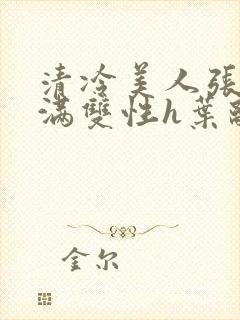 清冷美人張
滿雙性h葉
金尔